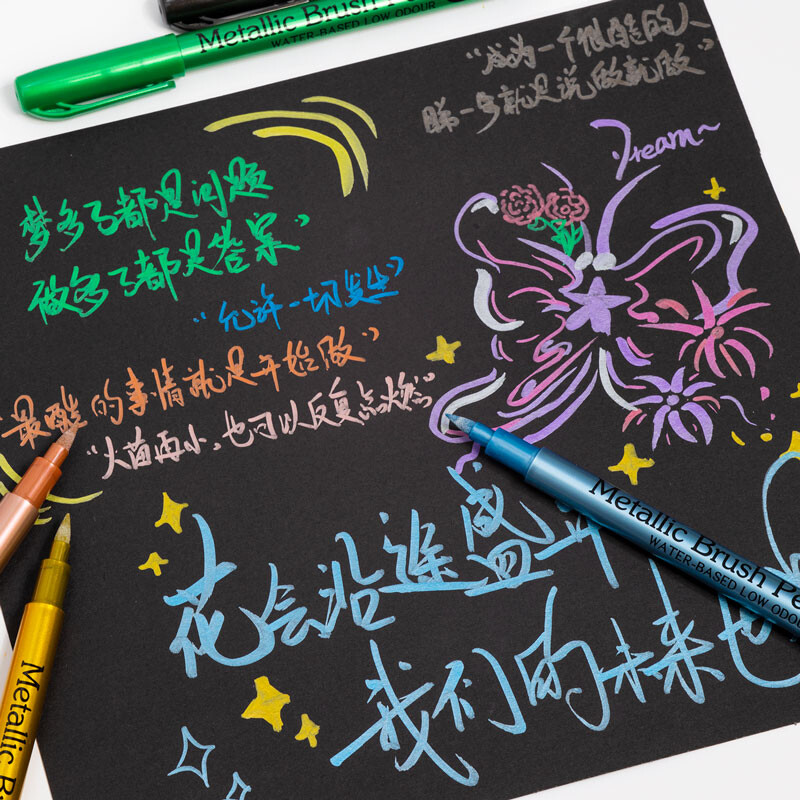 Metallic Brush Pe
WATER-BASED LOW ODOUR
“成为一个很酷的人
第一步就是说做就做”
Dream~
梦多了都是问题
做多了都是答案”
“允许一切发生”
“最酷的事情就是开始做”
“火苗再小,也可以反复点燃”
花会沿途盛开
我们的未来也
Metallic Brush Pe
WATER-BASED LOW ODOU
Metallic B